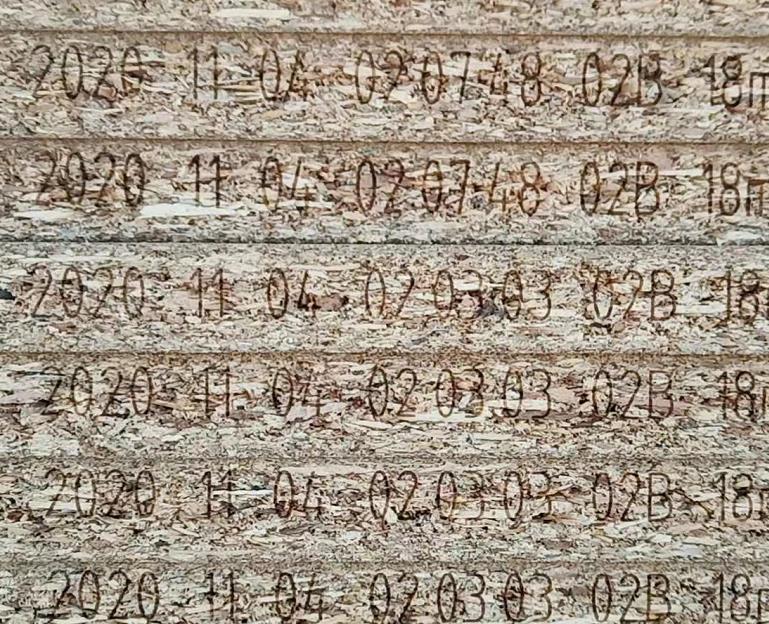 2020 11 04 02 07 48 02B 18m
2020 11 04 02 07 48 02B 18m
2020 11 04 02 03 03 02B 18
2020 11 04 02 03 03 02B 18m
2020 11 04 02 03 03 02B 18m
2020 11 04 02 03 03 02B 18m